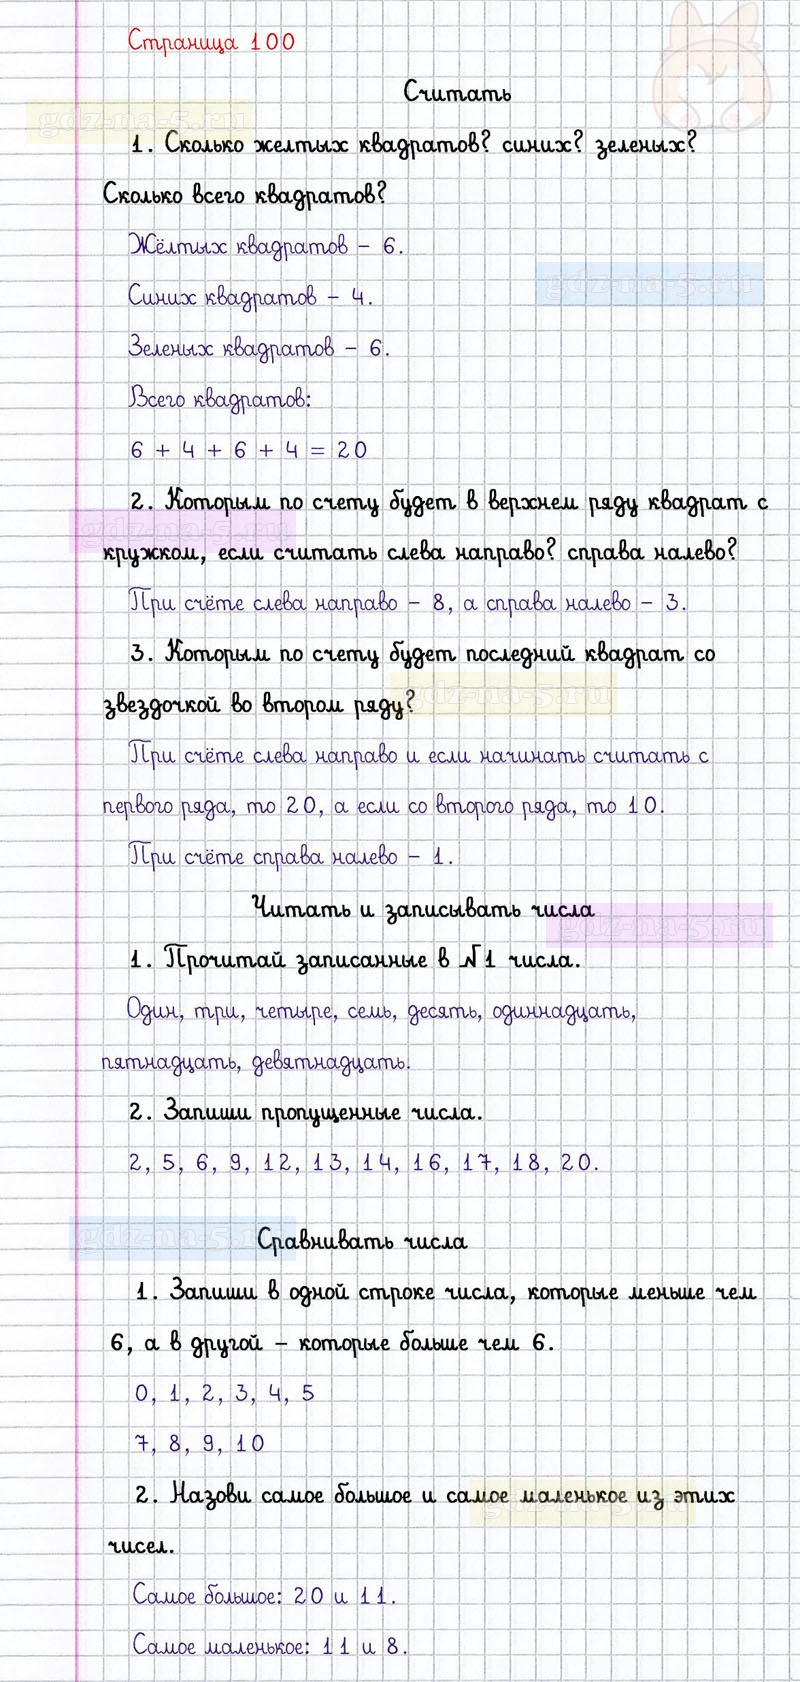 Страница 100
Считать
gdz-na-5.ru
1. Сколько желтых квадратов? синих? зеленых?
Сколько всего квадратов?
Жёлтых квадратов – 6.
gdz-na-5.ru
Синих квадратов – 4.
Зеленых квадратов – 6.
Всего квадратов:
6 + 4 + 6 + 4 = 20
2. Которым по счету будет в верхнем ряду квадрат с
gdz-na-5.ru
кружком, если считать слева направо? справа налево?
При счёте слева направо – 8, а справа налево – 3.
3. Которым по счету будет последний квадрат со
gdz-na-5.ru
звездочкой во втором ряду?
При счёте слева направо и если начинать считать с
первого ряда, то 20, а если со второго ряда, то 10.
При счёте справа налево – 1.
Читать и записывать числа
gdz-na-5.ru
1. Прочитай записанные в №1 числа.
Один, три, четыре, семь, десять, одиннадцать,
пятнадцать, девятнадцать.
2. Запиши пропущенные числа.
2, 5, 6, 9, 12, 13, 14, 16, 17, 18, 20.
gdz-na-5.ru
Сравнивать числа
1. Запиши в одной строке числа, которые меньше чем
6, а в другой – которые больше чем 6.
0, 1, 2, 3, 4, 5
7, 8, 9, 10
2. Назови самое большое и самое маленькое из этих
gdz-na-5.ru
чисел.
Самое большое: 20 и 11.
Самое маленькое: 11 и 8.